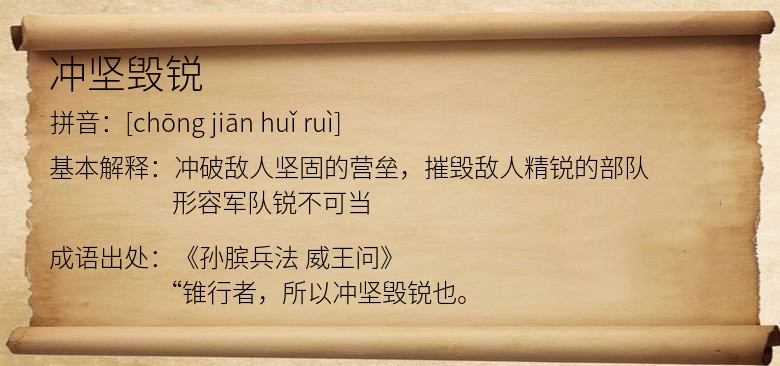 冲坚毁锐
拼音：[chōng jiān huǐ ruì]
基本解释：冲破敌人坚固的营垒，摧毁敌人精锐的部队
形容军队锐不可当
成语出处：《孙膑兵法 威王问》
“锥行者，所以冲坚毁锐也。